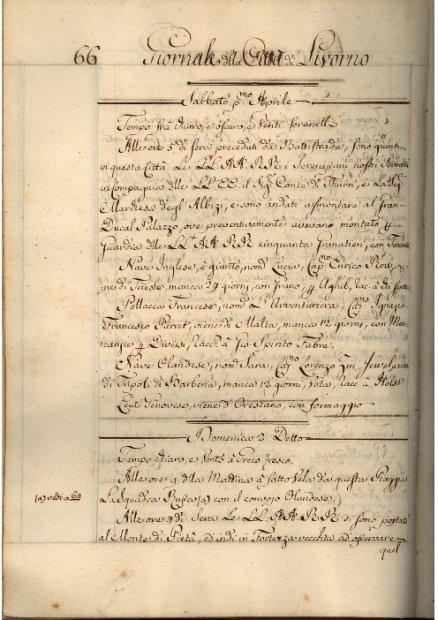 66 Giornale della Città di Livorno
Sabbato p.mo Aprile
Tempo fra chiaro, e oscuro, e Venti
Alle ore 5 di sera preceduti da Battistrada, sono giunti
in questa Città Le LL. AA. RR. i Serenissimi nostri Sovrani
in compagnia delle LL. EE. il Sig. Conte di Thurn, e La Sig.
Marchesa degl' Albizi, e sono andati a smontare al Gran-
Ducal Palazzo, ove preventivamente avevano montato
Guardia delle LL. AA. RR. cinquanta Granatieri, con
Nave Inglese, è giunto, nom. Cap.no Enrico
di Trieste, manca 24 giorni, con Grano,
Pollacca Francese, nom. L'Avventuriera, Cap. Ignazio
Francesco Parrot, viene di Malta, manca 12 giorni, con Mer-
canzie, e Diversi, racc. a Gio Spirito Fabre.
Nave Olandese, nom. Sara, Cap.no Lorenzo
di Tripoli di Barberia, manca 12 giorni, Vota, racc. a
Genovese, viene d'Orestano, con formaggio
Domenica 2 Detto
Tempo chiaro, e Vento a Greco fresco.
Alle ore 9 della Mattina à fatto Vela da questa Piaggia
La Squadra Russa (a) con il convojo Olandese.
(a) vedi a 69
Alle ore 4 di Sera Le LL. AA. RR. si sono portate
al Monte di Pietà, ed indi in Fortezza vecchia ad osservare
quel